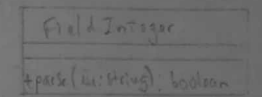 Field Integer
+parse(in: String): boolean